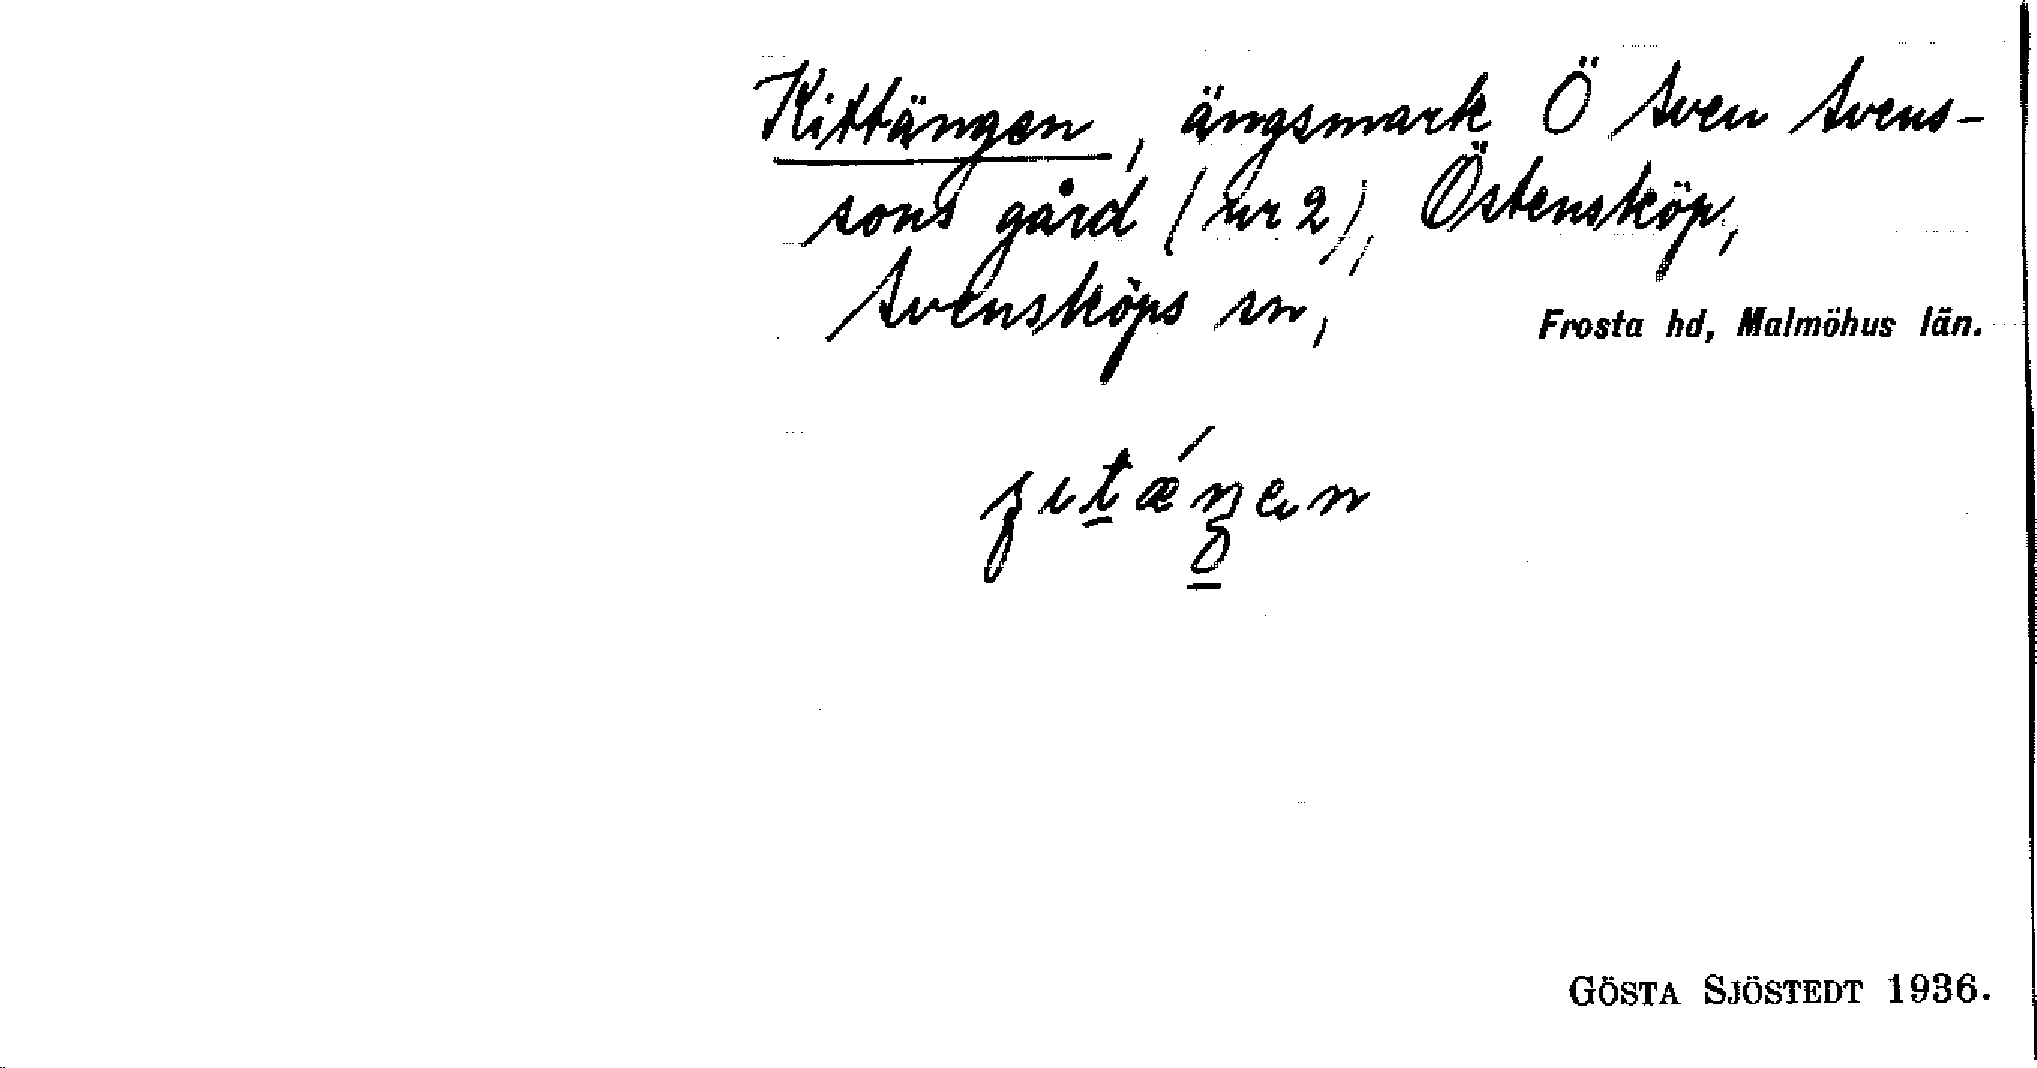 Kittängen, ängsmark Ö Sven Svens-
sons gård (nr 2), Östensköp,
Svensköps sn, Frosta hd, Malmöhus län.
GÖSTA SJÖSTEDT 1936.